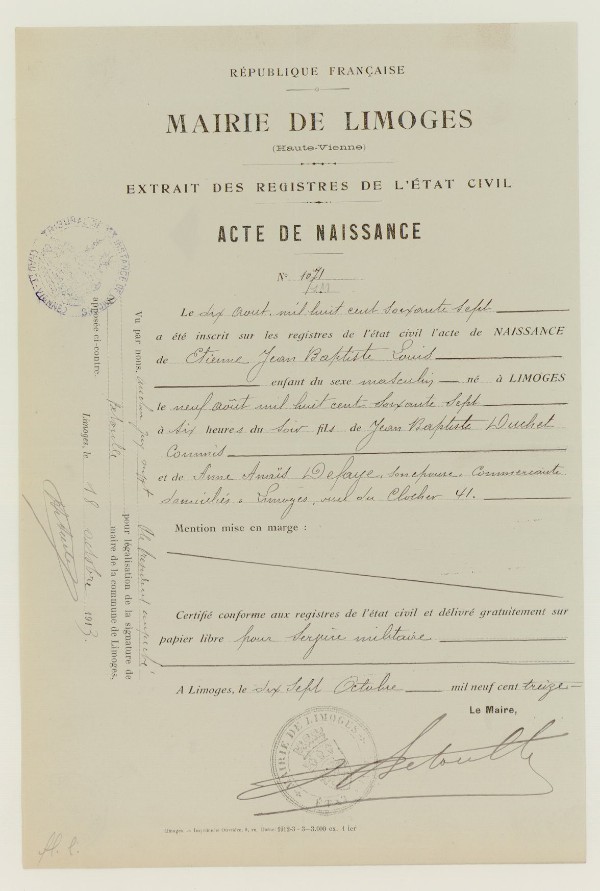 RÉPUBLIQUE FRANÇAISE
MAIRIE DE LIMOGES
(Haute-Vienne)
EXTRAIT DES REGISTRES DE L'ÉTAT CIVIL
ACTE DE NAISSANCE
N° 1071
Le dix août mil huit cent soixante sept
a été inscrit sur les registres de l'état civil l'acte de NAISSANCE
de Etienne Jean Baptiste Louis
enfant du sexe masculin né à LIMOGES
le neuf août mil huit cent soixante sept
à six heures du soir fils de Jean Baptiste Duchet
Commis
et de Anne Anaïs Defaye, son épouse, Commercante
domiciliés à Limoges, rue du Clocher 41.
Mention mise en marge :
Certifié conforme aux registres de l'état civil et délivré gratuitement sur
papier libre pour Service militaire
A Limoges, le dix Sept Octobre mil neuf cent treize
Le Maire,
MAIRIE DE LIMOGES
Vu par nous,
pour légalisation de la signature de
M.
maire de la commune de Limoges,
apposée ci-contre.
Limoges, le 18 octobre 1913
H. C.